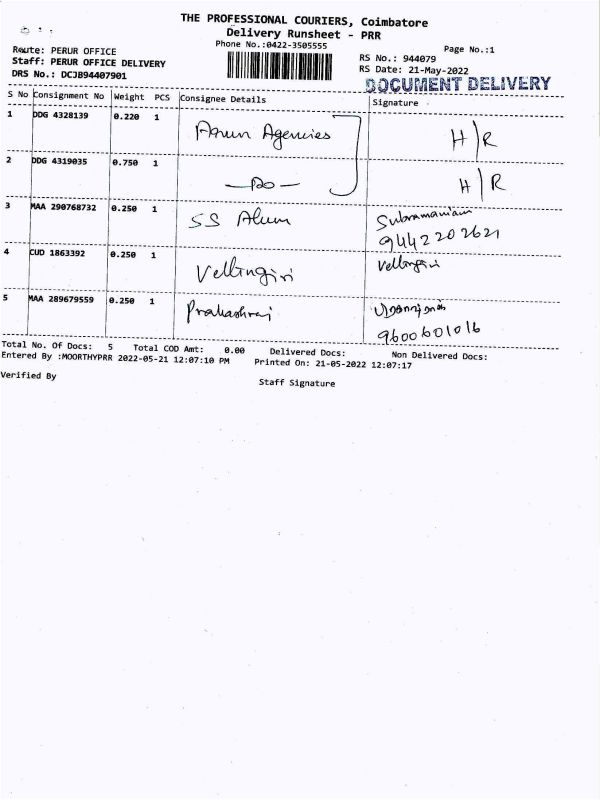 THE PROFESSIONAL COURIERS, Coimbatore
Delivery Runsheet - PRR
Phone No.:0422-3505555
Page No.:1
Route: PERUR OFFICE
RS No.: 944079
Staff: PERUR OFFICE DELIVERY
RS Date: 21-May-2022
DRS No.: DCJB94407901
DOCUMENT DELIVERY
S No Consignment No Weight PCS Consignee Details Signature
1 DDG 4328139 0.220 1 Arun Agencies H/R
2 DDG 4319035 0.750 1 —Do— H/R
3 MAA 290768732 0.250 1 SS Alum Subramaniam
9442202621
4 CUD 1863392 0.250 1 Vellingiri Vellingiri
5 MAA 289679559 0.250 1 Prakashraj
9600601016
Total No. Of Docs: 5 Total COD Amt: 0.00 Delivered Docs: Non Delivered Docs:
Entered By :MOORTHYPRR 2022-05-21 12:07:10 PM Printed On: 21-05-2022 12:07:17
Verified By
Staff Signature